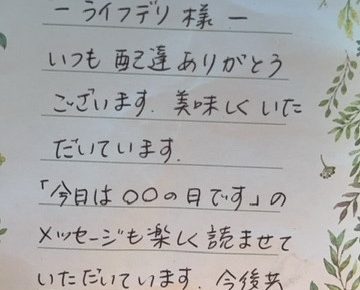 －ライフデリ 様－
いつも 配達 ありがとう
ございます. 美味しく いた
だいています.
「今日は ○○の日です」の
メッセージも 楽しく 読ませて
いただいています. 今後共